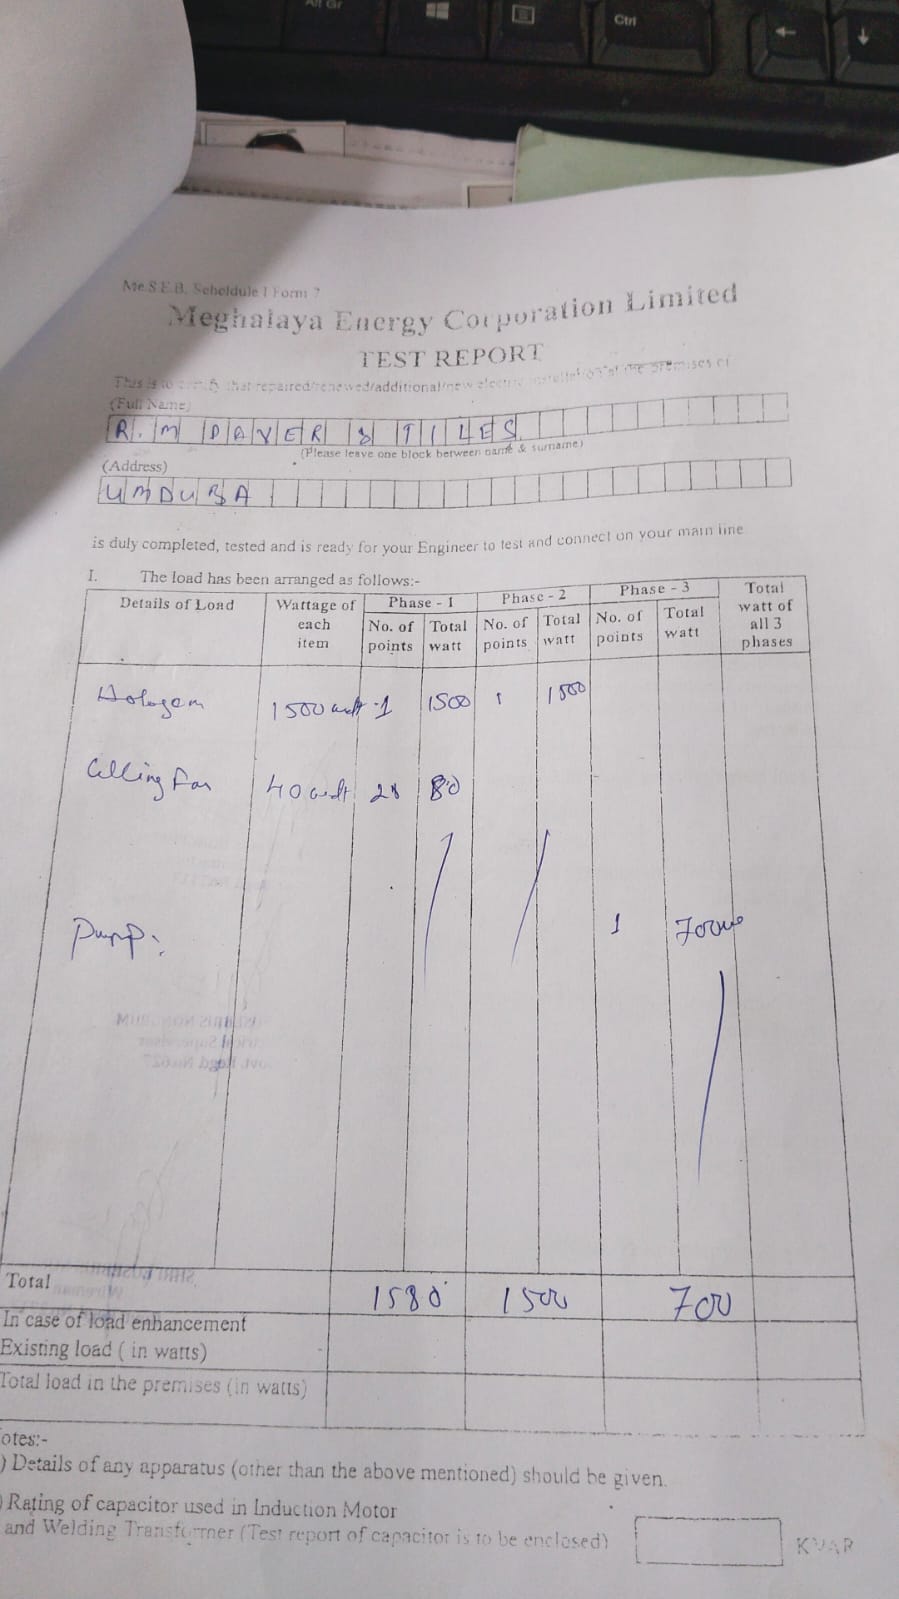 Alt Gr
Ctrl
Me.S.E.B. Scheldule I Form 7
Meghalaya Energy Corporation Limited
TEST REPORT
This is to certify that repaired/renewed/additional/new electric installation at the premises of
(Full Name)
R. M DAVER & TILES
(Please leave one block between name & surname)
(Address)
UMDUBA
is duly completed, tested and is ready for your Engineer to test and connect on your main line
I. The load has been arranged as follows:-
Details of Load Wattage of each item Phase - 1 Phase - 2 Phase - 3 Total watt of all 3 phases
No. of points Total watt No. of points Total watt No. of points Total watt
Hologem 1500 watt 1 1500 1 1500
Celling Fan 40 watt 2 80
Pump. 1 700
Total 1580 1500 700
In case of load enhancement
Existing load ( in watts)
Total load in the premises (in watts)
otes:-
) Details of any apparatus (other than the above mentioned) should be given.
) Rating of capacitor used in Induction Motor
and Welding Transformer (Test report of capacitor is to be enclosed) KVAR